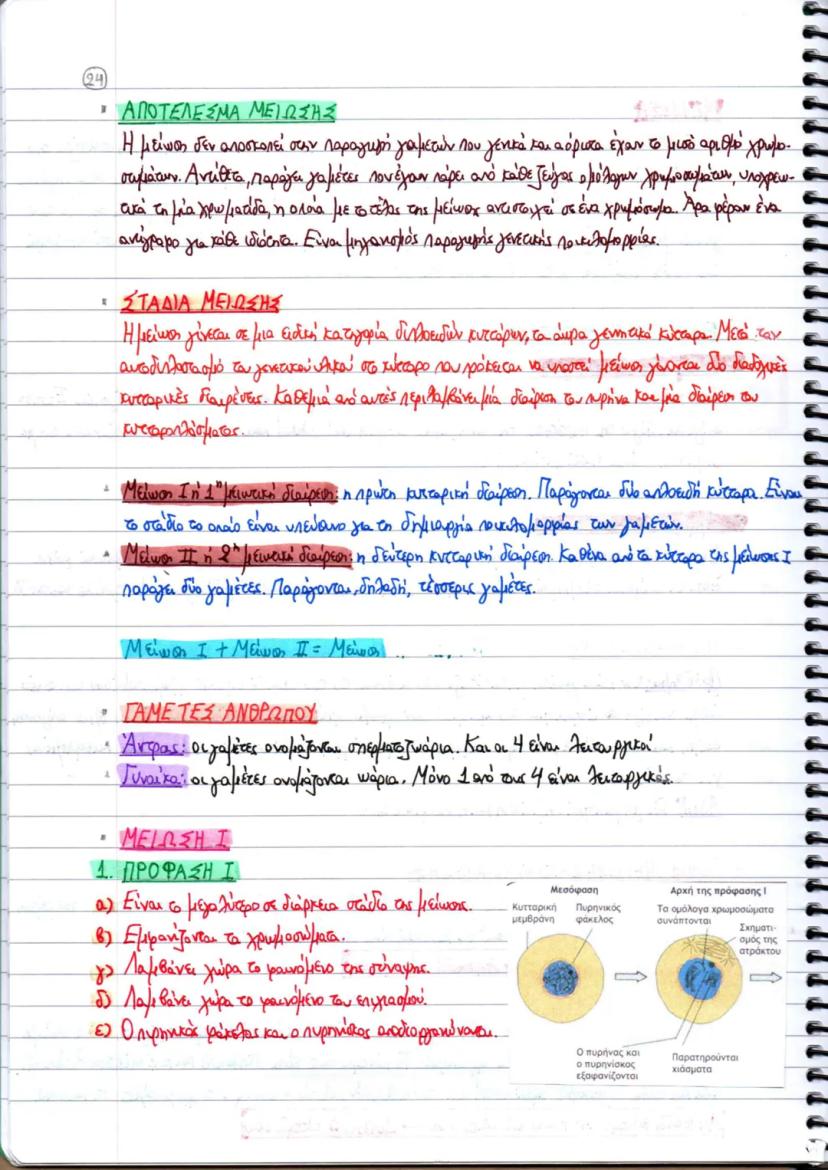 24
ΑΠΟΤΕΛΕΣΜΑ ΜΕΙΩΣΗΣ
Η μείωση δεν αποσκοπεί στην παραγωγή γαμετών που γενικά και αόριστα έχουν το μισό αριθμό χρωμο-
σωμάτων. Αντίθετα, παράγει γαμέτες που έχουν πάρει από κάθε ζεύγος ομόλογων χρωμοσωμάτων, υποχρεω-
τικά τη μία χρωματίδα, η οποία με το τέλος της μείωσης αντιστοιχεί σε ένα χρωμόσωμα. Άρα φέρουν ένα
αντίγραφο για κάθε ιδιότητα. Είναι μηχανισμός παραγωγής γενετικής ποικιλομορφίας.
ΣΤΑΔΙΑ ΜΕΙΩΣΗΣ
Η μείωση γίνεται σε μια ειδική κατηγορία διπλοειδών κυττάρων, τα άωρα γεννητικά κύτταρα. Μετά τον
αυτοδιπλασιασμό του γενετικού υλικού στο κύτταρο που πρόκειται να υποστεί μείωση γίνονται δύο διαδοχικές
κυτταρικές διαιρέσεις. Καθεμιά από αυτές περιλαμβάνει μία διαίρεση του πυρήνα και μία διαίρεση του
κυτταροπλάσματος.
Μείωση Ι ή 1η μειωτική διαίρεση: η πρώτη κυτταρική διαίρεση. Παράγονται δύο απλοειδή κύτταρα. Είναι
το στάδιο το οποίο είναι υπεύθυνο για τη δημιουργία ποικιλομορφίας των γαμετών.
Μείωση ΙΙ ή 2η μειωτική διαίρεση: η δεύτερη κυτταρική διαίρεση. Καθένα από τα κύτταρα της μείωσης Ι
παράγει δύο γαμέτες. Παράγονται, δηλαδή, τέσσερις γαμέτες.
Μείωση Ι + Μείωση ΙΙ = Μείωση
ΓΑΜΕΤΕΣ ΑΝΘΡΩΠΟΥ
Άντρας: οι γαμέτες ονομάζονται σπερματοζωάρια. Και οι 4 είναι λειτουργικοί
Γυναίκα: οι γαμέτες ονομάζονται ωάρια. Μόνο 1 από τους 4 είναι λειτουργικός.
ΜΕΙΩΣΗ Ι
1. ΠΡΟΦΑΣΗ Ι
α) Είναι το μεγαλύτερο σε διάρκεια στάδιο της μείωσης.
β) Εμφανίζονται τα χρωμοσώματα.
γ) Λαμβάνει χώρα το φαινόμενο της σύναψης.
δ) Λαμβάνει χώρα το φαινόμενο του επιχιασμού.
ε) Ο πυρηνικός φάκελος και ο πυρηνίσκος αποδιοργανώνονται.
Μεσόφαση
Κυτταρική
μεμβράνη
Πυρηνικός
φάκελος
Αρχή της πρόφασης Ι
Τα ομόλογα χρωμοσώματα
συνάπτονται
Σχηματι-
σμός της
ατράκτου
Ο πυρήνας και
ο πυρηνίσκος
εξαφανίζονται
Παρατηρούνται
χιάσματα